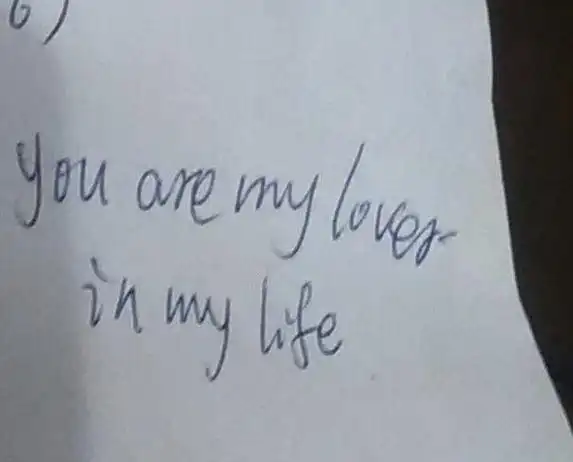 6)
you are my lover
in my life